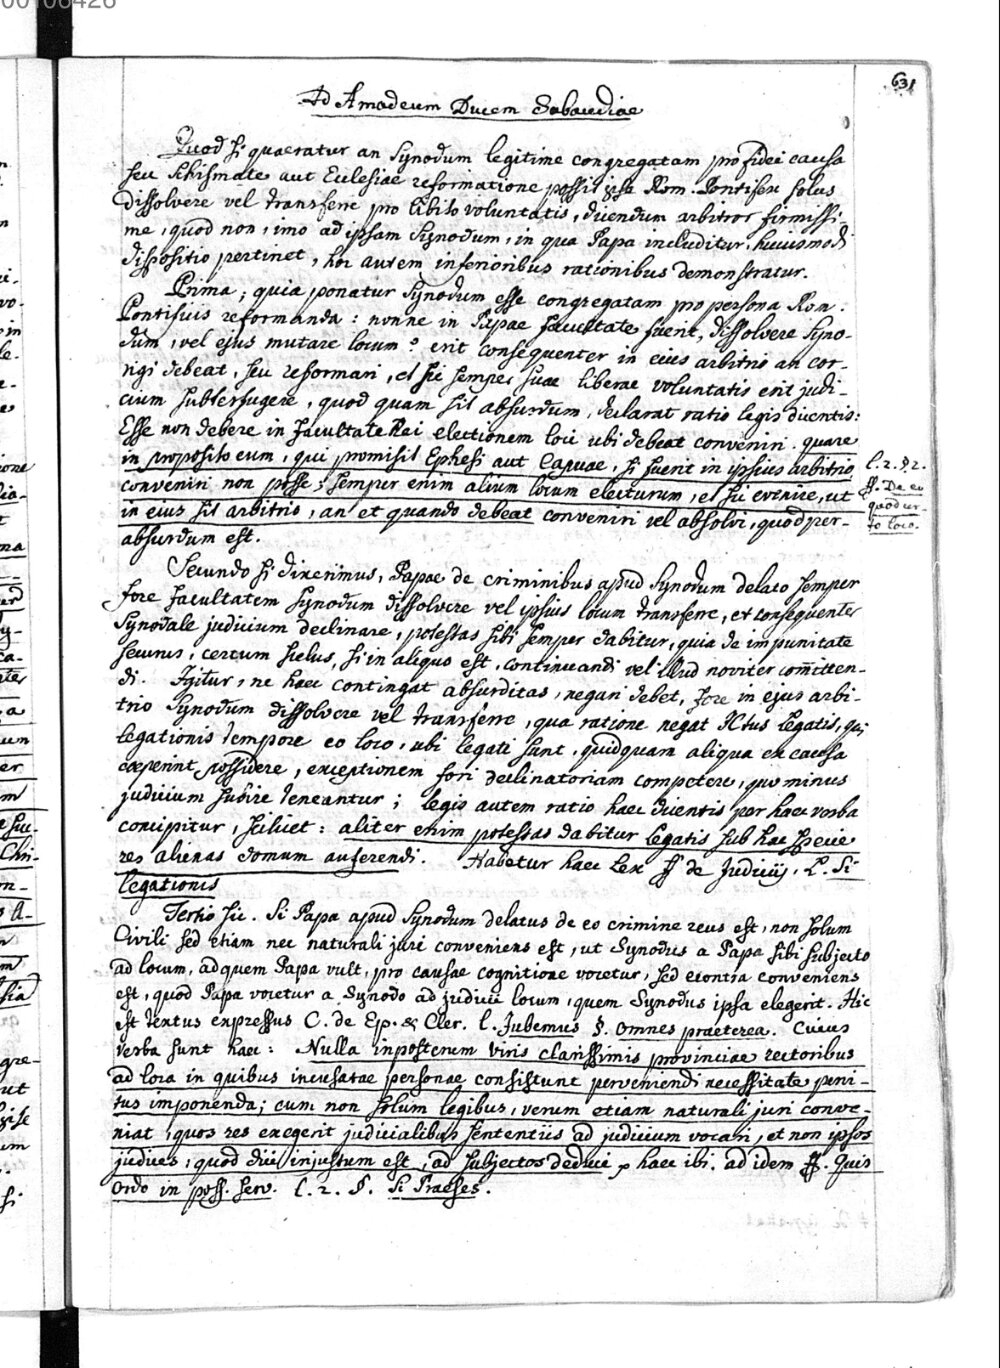 00106426
631
Ad Amadeum Ducem Sabaudiae
Quod si quaeratur an Synodum legitime congregatam pro fidei causa
seu schismate aut Ecclesiae reformatione possit ipse Rom. Pontifex solus
dissolvere vel transferre pro libito voluntatis, dicendum arbitror firmissi-
me, quod non, imo ad ipsam Synodum, in qua Papa includitur, huiusmodi
dispositio pertinet, hoc autem inferioribus rationibus demonstratur.
Prima; quia ponatur Synodum esse congregatam pro persona Rom.
Pontificis reformanda: nonne in Papae facultate fuerit, dissolvere Syno-
dum, vel ejus mutare locum? erit consequenter in eius arbitrio an cor-
rigi debeat, seu reformari, et sic semper suae liberae voluntatis erit judi-
cium subterfugere, quod quam sit absurdum, declarat ratio legis dicentis:
Esse non debere in facultate Rei electionem loci ubi debeat conveniri. quare
in proposito eum, qui promisit Ephesi aut Capuae, si fuerit in ipsius arbitrio
conveniri non posse; semper enim alium locum electurum, et sic evenire, ut
in eius sit arbitrio, an et quando debeat conveniri vel absolvi, quod per-
absurdum est.
l. 2. §. 2.
ff. De eo
quod cer-
to loco.
Secundo si dixerimus, Papae de criminibus apud Synodum delato semper
fore facultatem Synodum dissolvere vel ipsius locum transferre, et consequenter
Synodale judicium declinare, potestas sibi semper dabitur, quia de impunitate
securus, certum scelus, si in aliquo est, continuandi vel illud noviter com̅itten-
di. Igitur, ne haec contingat absurditas, negari debet, fore in ejus arbi-
trio Synodum dissolvere vel transferre, qua ratione negat ICtus legatis, qui
legationis tempore eo loco, ubi legati sunt, quidquam aliqua ex causa
coeperint possidere, exceptionem fori declinatoriam competere, quo minus
judicium subire teneantur; legis autem ratio haec dicentis per haec verba
concipitur, scilicet: aliter enim potestas dabitur legatis sub hac specie
res alienas domum auferendi. Habetur haec Lex ff de Judiciis. L. Si
legationis
Tertio sic. Si Papa apud Synodum delatus de eo crimine reus est, non solum
Civili sed etiam nec naturali juri conveniens est, ut Synodus a Papa sibi subjecto
ad locum, ad quem Papa vult, pro causae cognitione vocetur, sed econtra conveniens
est, quod Papa vocetur a Synodo ad judicii locum, quem Synodus ipsa elegerit. Hic
est textus expressus C. de Ep. & Cler. l. Jubemus §. omnes praeterea. Cuius
verba sunt haec: Nulla inposterum viris clarissimis provinciae rectoribus
ad loca in quibus incusatae personae consistunt perveniendi necessitate peni-
tus imponenda; cum non solum legibus, verum etiam naturali juri conve-
niat, quos res exegerit judicialibus sententiis ad judicium vocari, et non ipsos
judices, quod dici injustum est, ad subjectos deduci, haec ibi. ad idem ff. Quis
ordo in poss. serv. l. 2. §. Si Praeses.